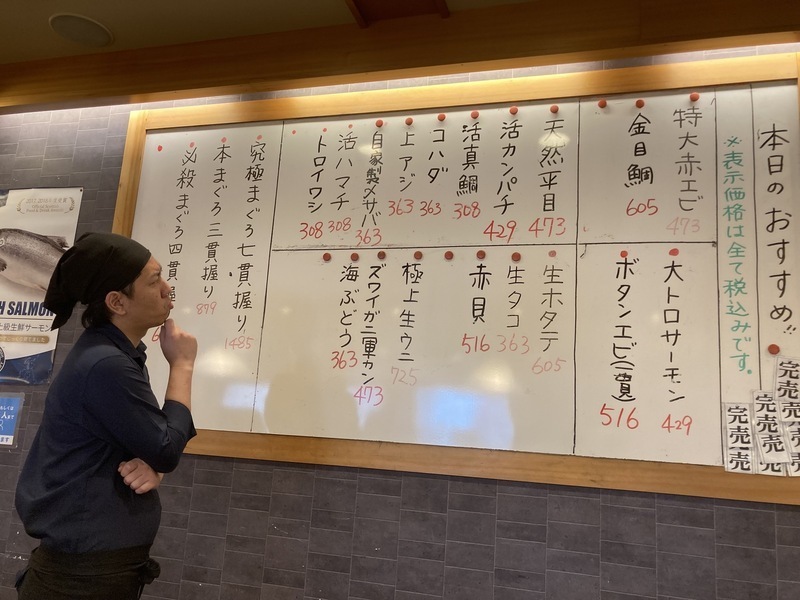 本日のおすすめ!!
※表示価格は全て税込みです。
特大赤エビ
473
金目鯛
605
天然平目
473
活カンパチ
429
活真鯛
308
コハダ
363
上アジ
363
自家製〆サバ
363
活ハマチ
308
トロイワシ
308
究極まぐろ七貫握り
1485
本まぐろ三貫握り
879
必殺まぐろ四貫握
大トロサーモン
429
ボタンエビ(一貫)
516
生ホタテ
605
生タコ
363
赤貝
516
極上生ウニ
725
ズワイガニ軍カン
473
海ぶどう
363
完売
完売
完売
完売
完売
完売
H SALMON
上級生鮮サーモン